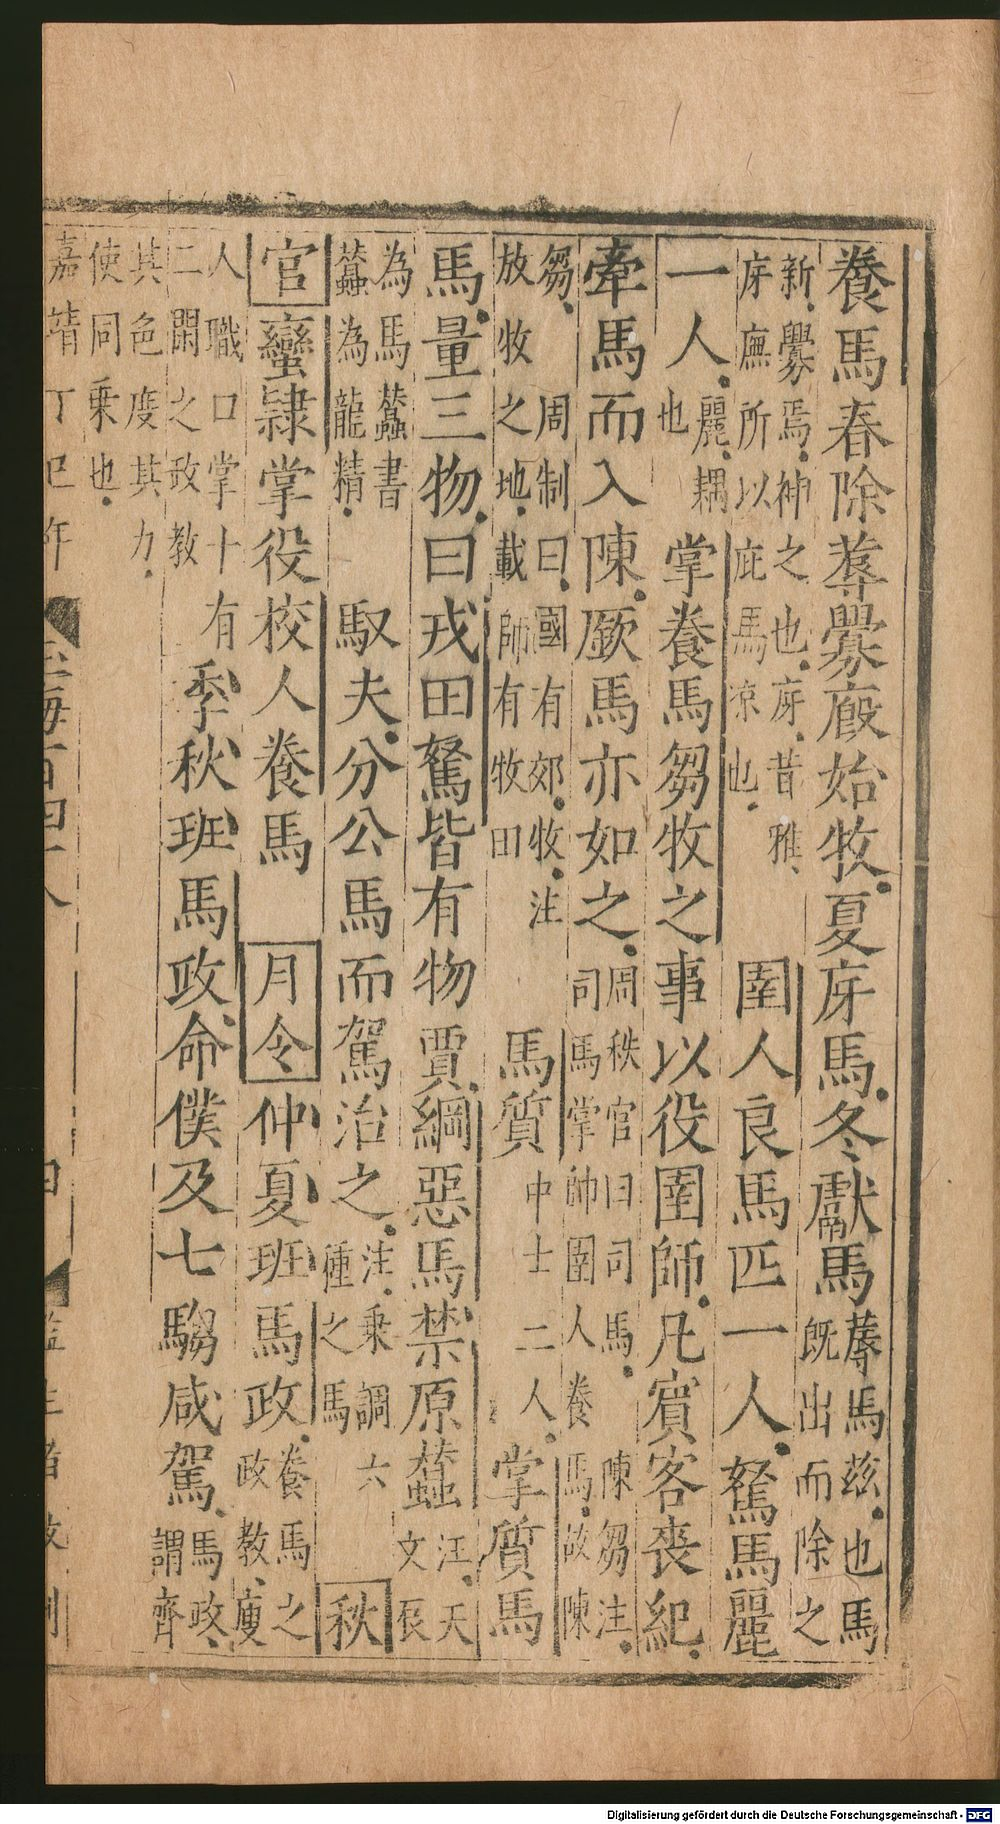 養馬春除蓐釁廄始牧夏庌馬冬獻馬蓐馬茲也馬既出而除之
新釁焉神之也庌昔雅庌廡所以庇馬凉也圉人良馬匹一人駑馬麗
一人麗耦也掌養馬芻牧之事以役圉師凡賓客喪紀
牽馬而入陳廞馬亦如之周秩官曰司馬陳芻注司馬掌帥圉人養馬故陳
芻周制曰國有郊牧注放牧之地載師有牧田馬質中士二人掌質馬
馬量三物曰戎田駑皆有物賈綱惡馬禁原蠶注天文辰
為馬蠶書蠶為龍精馭夫分公馬而駕治之注乗調六種之馬秋
官蠻隸掌役校人養馬月令仲夏班馬政養馬之政教廋
人職口掌十有二閑之政教季秋班馬政命僕及七騶咸駕馬政謂齊
其色度其力使同乗也
嘉靖丁巳年
Digitalisierung gefördert durch die Deutsche Forschungsgemeinschaft - DFG